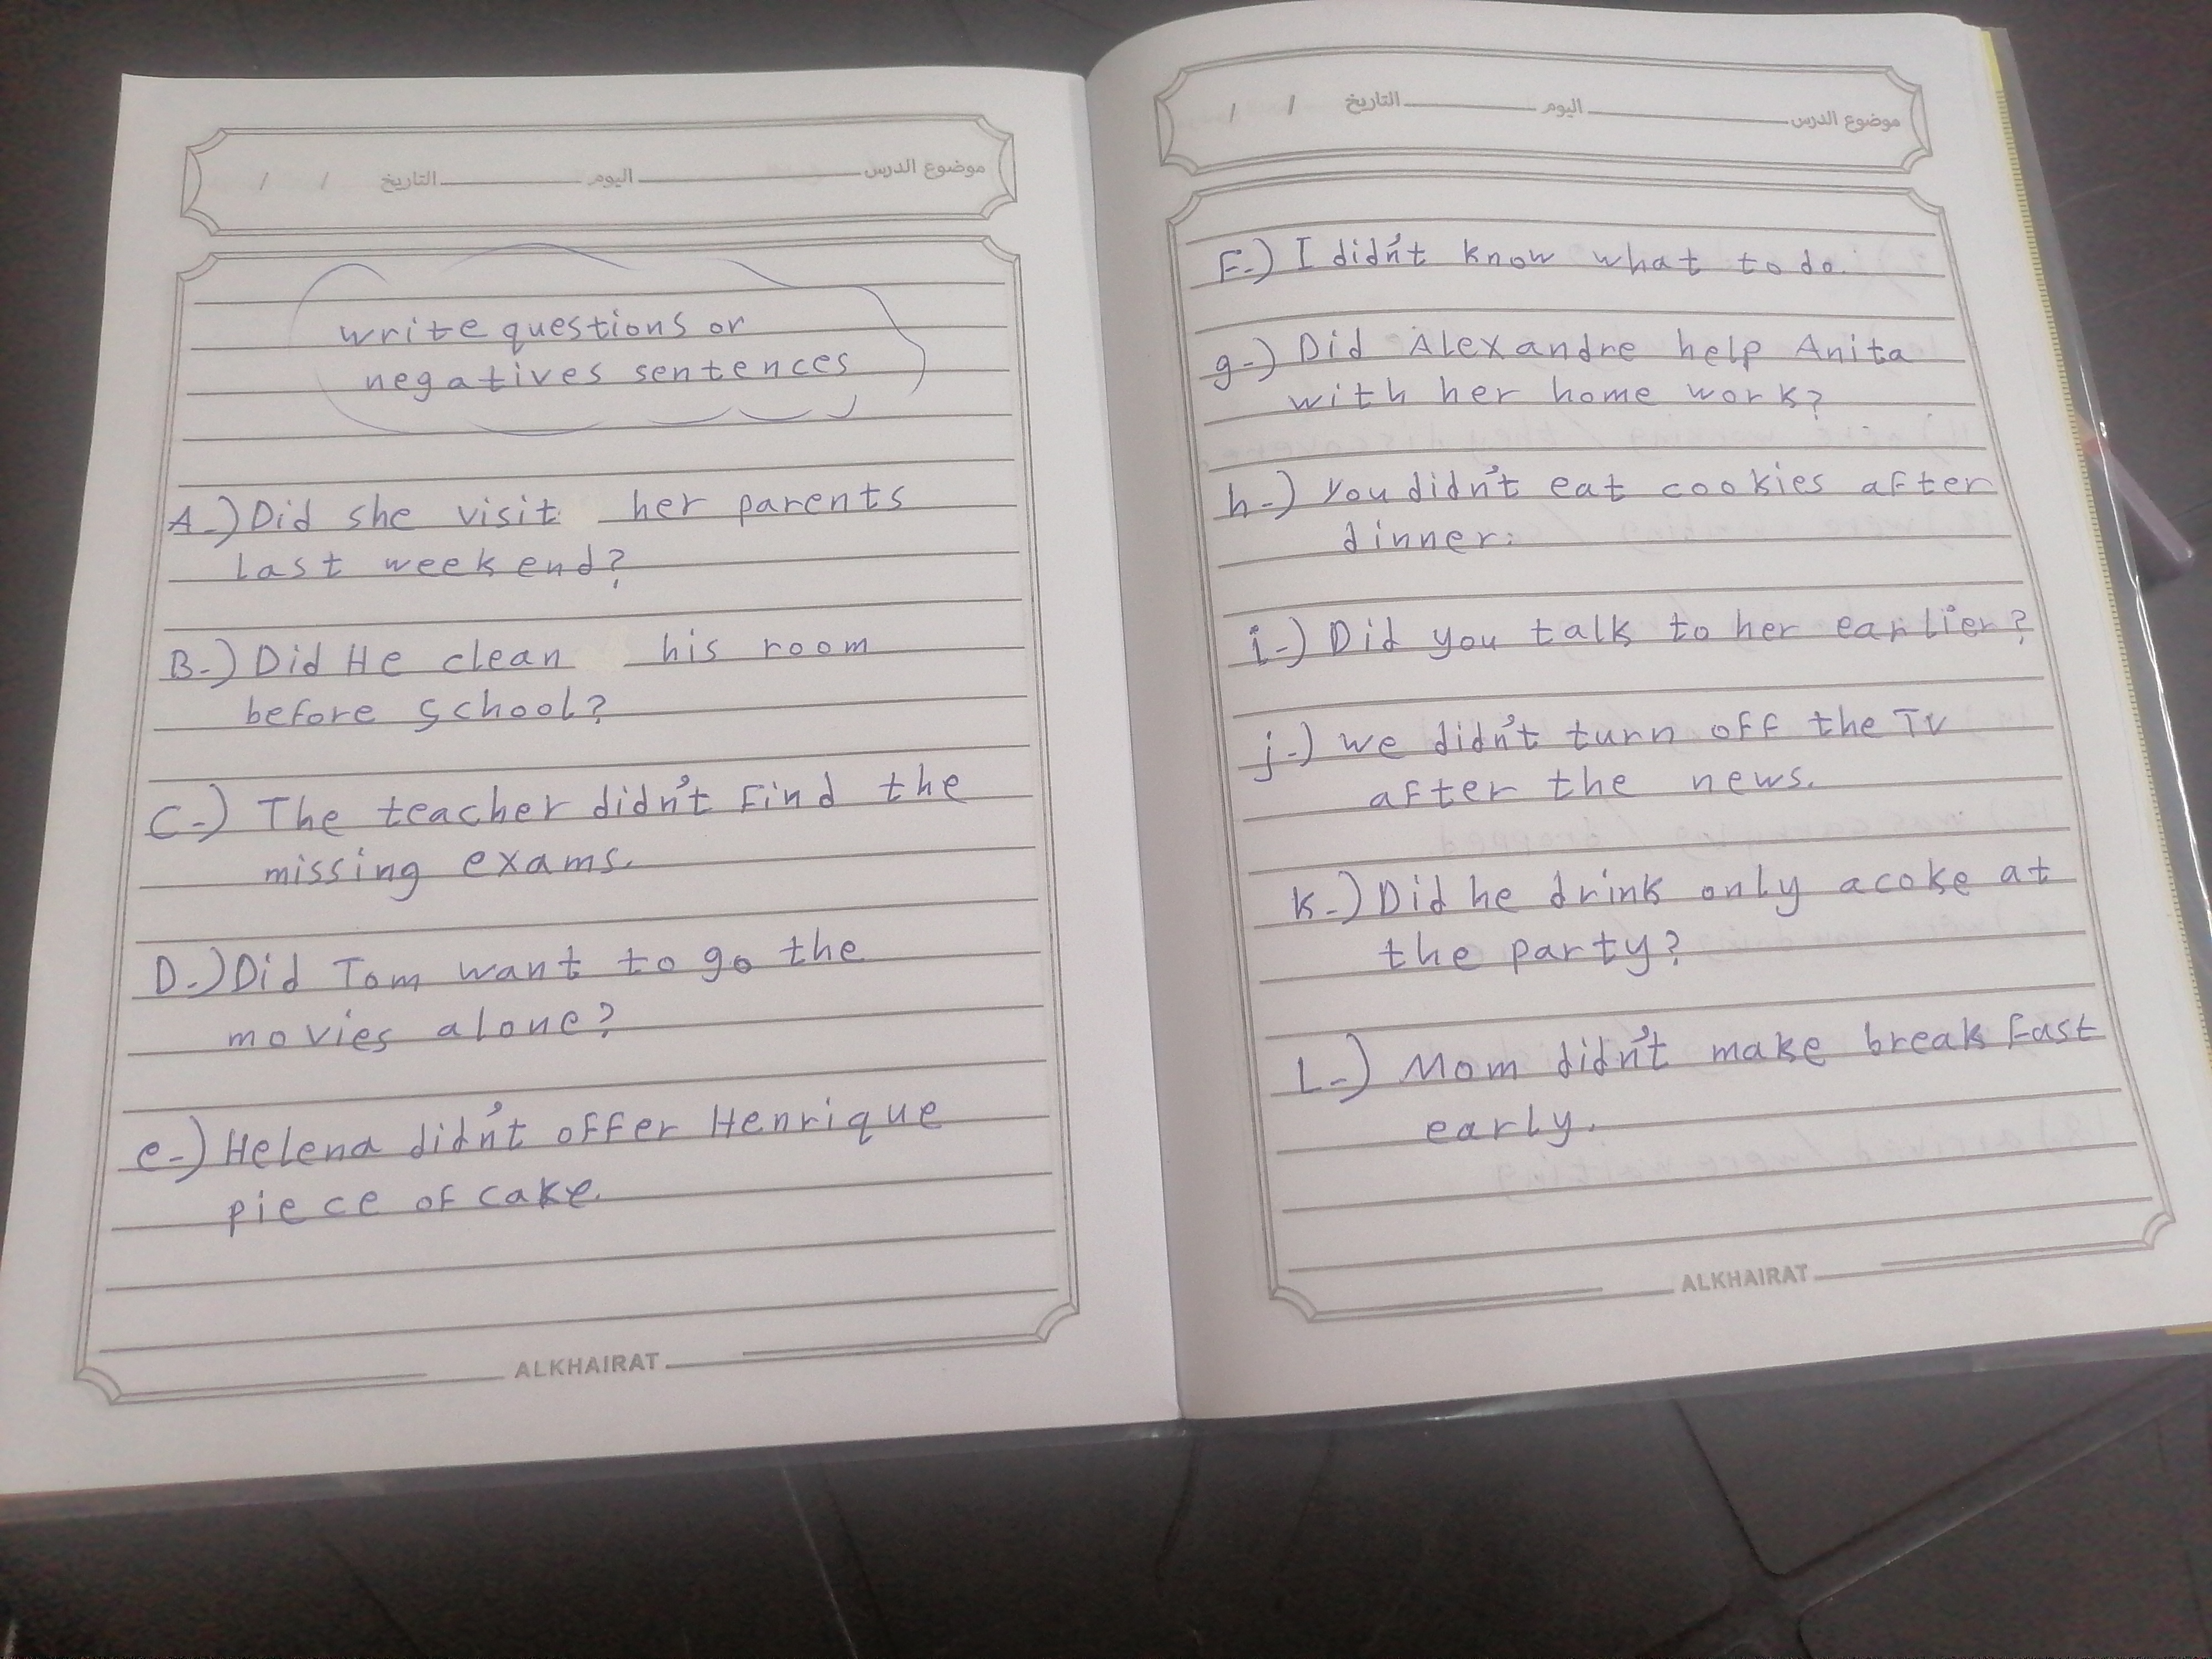 موضوع الدرس اليوم التاريخ / /
write questions or
negatives sentences
A-) Did she visit her parents
last weekend?
B-) Did He clean his room
before school?
C-) The teacher didn't find the
missing exams.
D-) Did Tom want to go the
movies alone?
e-) Helena didn't offer Henrique
piece of cake.
ALKHAIRAT
موضوع الدرس اليوم التاريخ / /
F-) I didn't know what to do.
g-) Did Alexandre help Anita
with her home work?
h-) You didn't eat cookies after
dinner.
i-) Did you talk to her earlier?
j-) we didn't turn off the TV
after the news.
K-) Did he drink only a coke at
the party?
L-) Mom didn't make break fast
early.
ALKHAIRAT